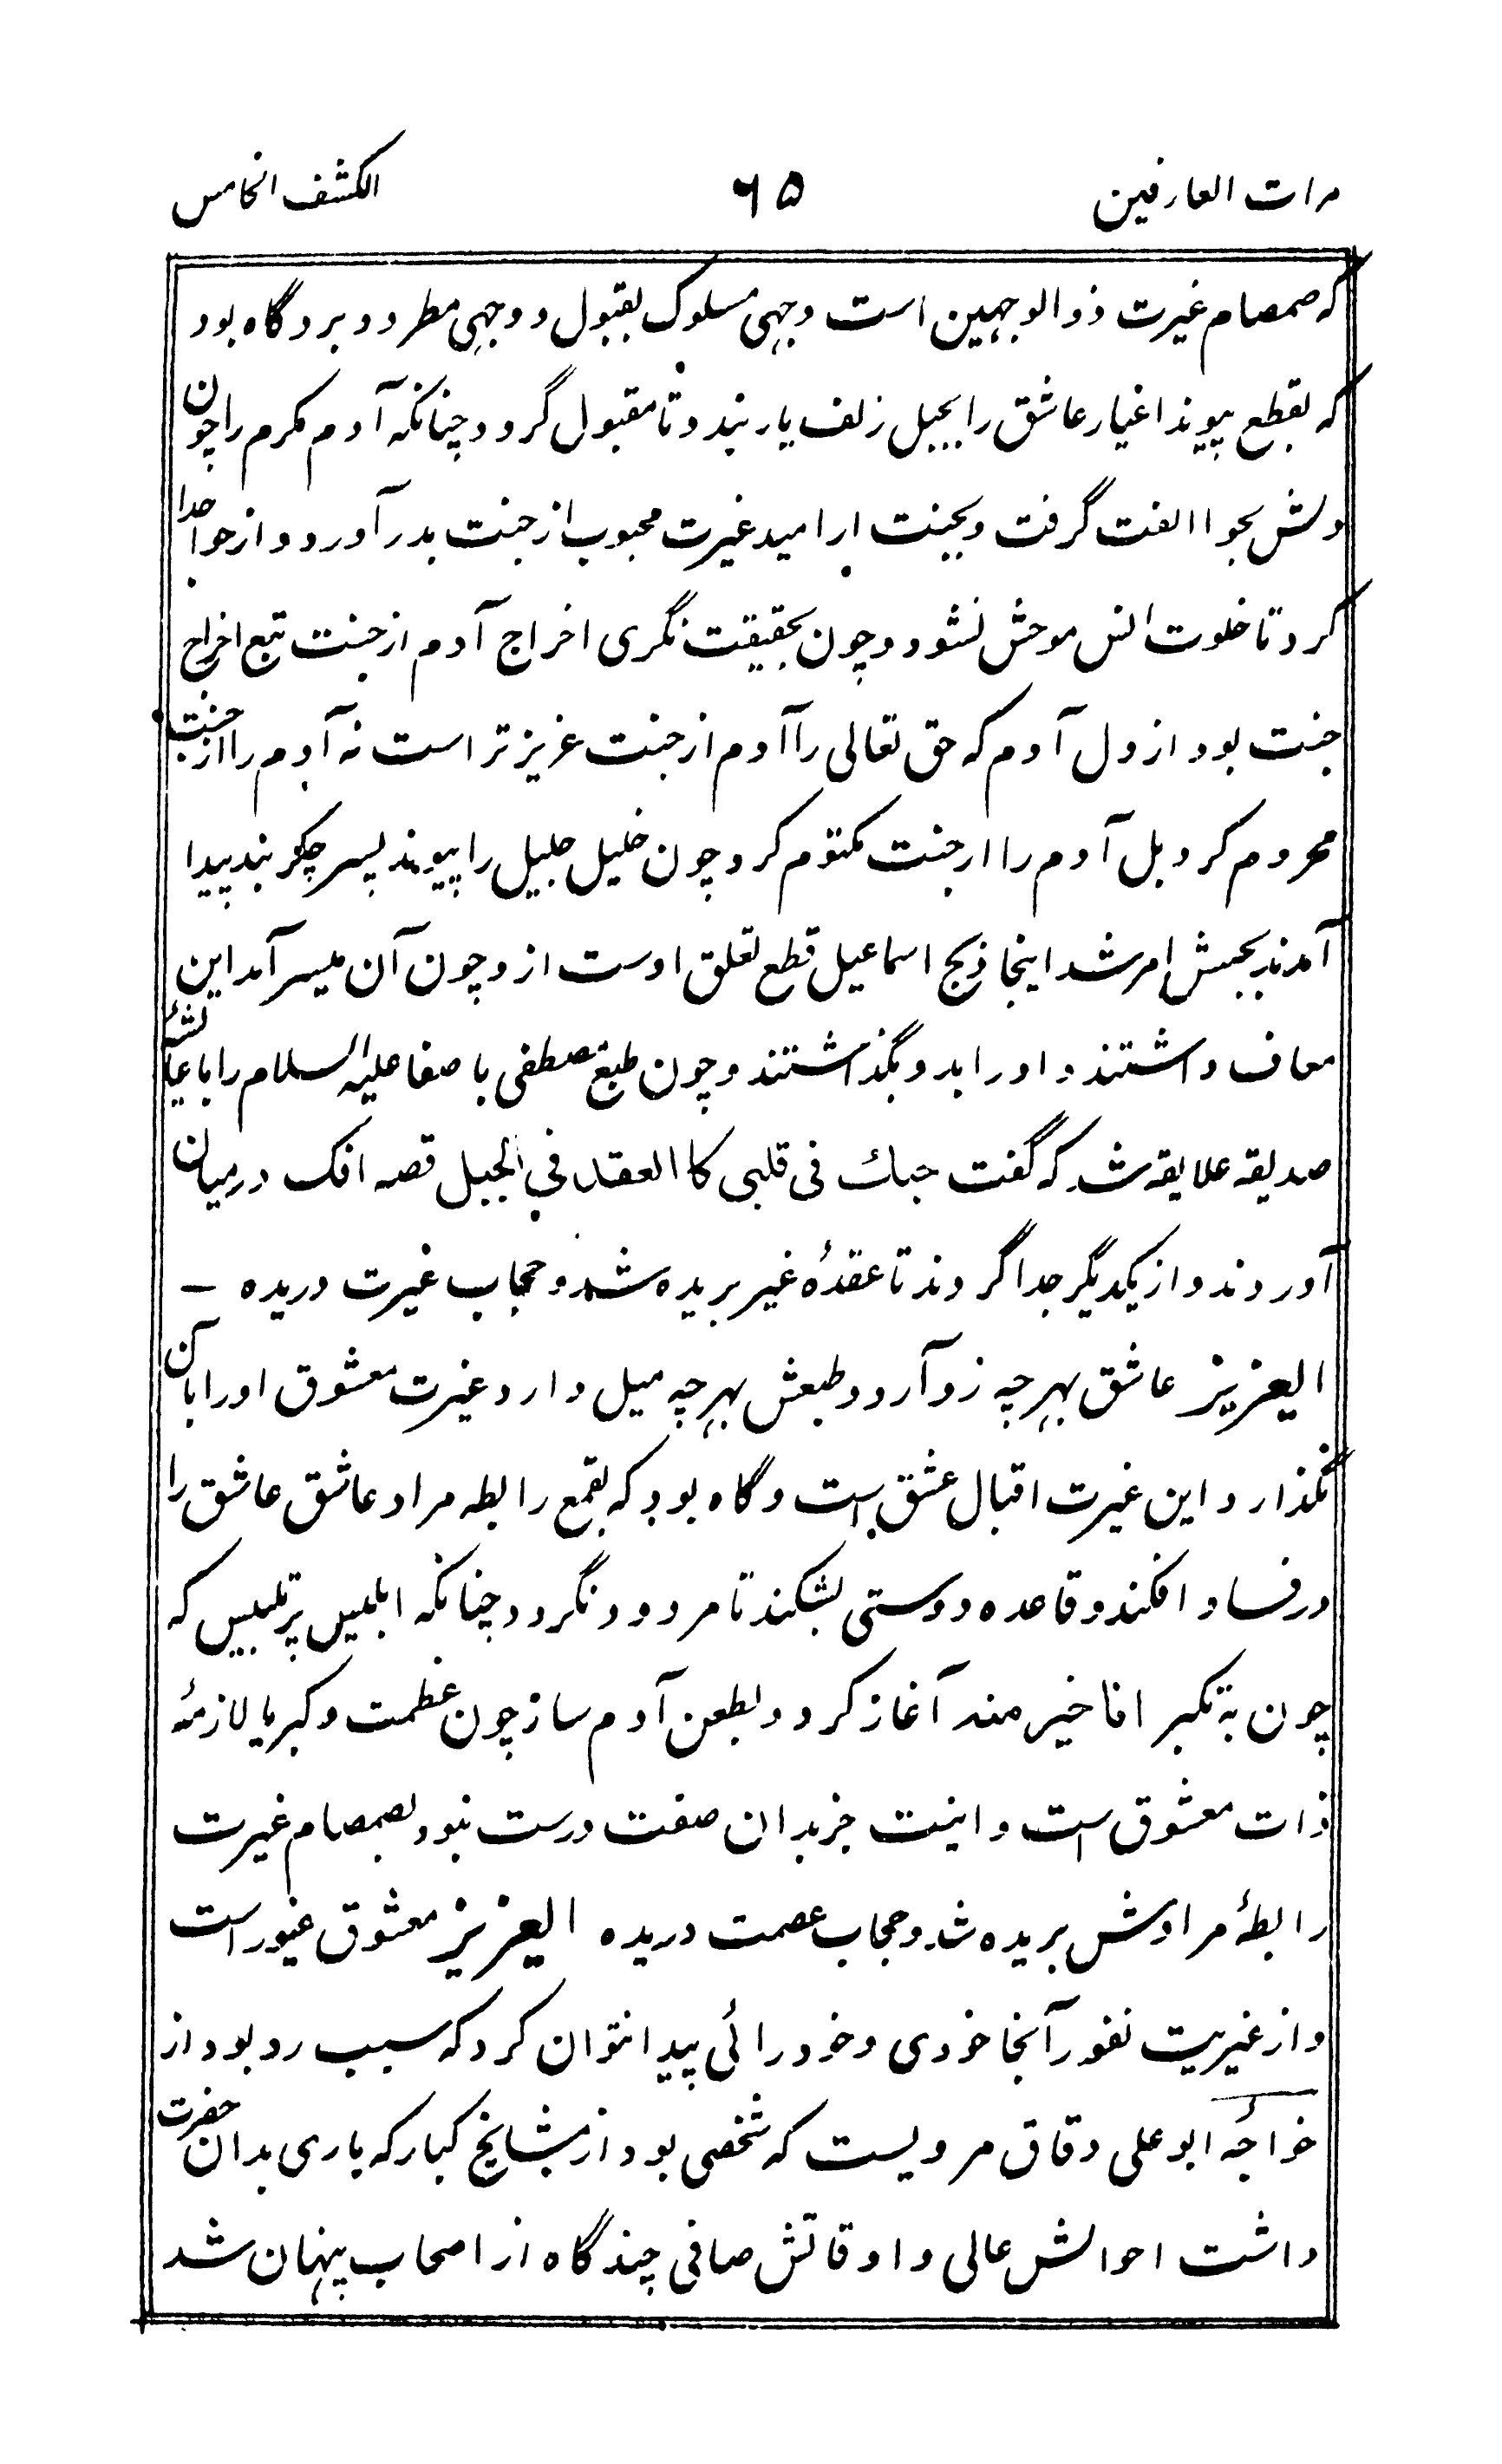 مرات العارفین ۶۵ الکشف الخامس
که صمصام غیرت ذو الوجهین است وجهی مسلوک بقبول و وجهی مطرود بردگاه بود
که بقطع پیوند اغیار عاشق را بحبل زلف یار بندد تا مقبول گردد چنانکه آدم مکرم را چون
دلش بحوا الفت گرفت و بجنت آرامید غیرت محبوب از جنت بدر آورد و از حوا جدا
کرد تا خلوت انس موحش نشود و چون بحقیقت نگری اخراج آدم از جنت تبع اخراج
جنت بود از دل آدم که حق تعالی را آدم از جنت عزیزتر است نه آدم را از جنت
محروم کرد بل آدم را از جنت مکتوم کرد چون خلیل جلیل را پیوند پسر جگر بند پیدا
آمد بذبحش امر شد اینجا ذبح اسماعیل قطع تعلق اوست ازو چون آن میسر آمد این
معاف داشتند و او را بدو بگذاشتند و چون طبع مصطفی با صفا علیه السلام را با عائشه
صدیقه علایقه شد که گفت حبك فی قلبی کا العقد فی الحبل قصه افک در میان
آوردند و از یکدیگر جدا گردند تا عقدهٔ غیر بریده شد و حجاب غیرت دریده –
الیعزیز عاشق بهرچه زو آرد و طبعش بهرچه میل دارد غیرت معشوق او را بآن
نگذارد این غیرت اقبال عشق است و گاه بود که بقمع رابطه مراد عاشق عاشق را
در فساد افکند و قاعده دوستی بشکند تا مردود نگردد چنانکه ابلیس پرتلبیس که
چون به تکبر انا خیر منه آغاز کرد و بطعن آدم ساز چون عظمت و کبریا لازمهٔ
ذات معشوق است و اینت جز بدان صفت درست نبود بصمصام غیرت
رابطهٔ مرادش بریده شد و حجاب عصمت دریده الیعزیز معشوق غیور است
و از غیریت نفور آنجا خودی و خود رائی پیدا نتوان کرد که سبب رد بود از
خواجهٔ ابو علی دقاق مرویست که شخصی بود از مشایخ کبار که یاری بدان حضرت
داشت احوالش عالی و اوقاتش صافی چند گاه از اصحاب پنهان شد